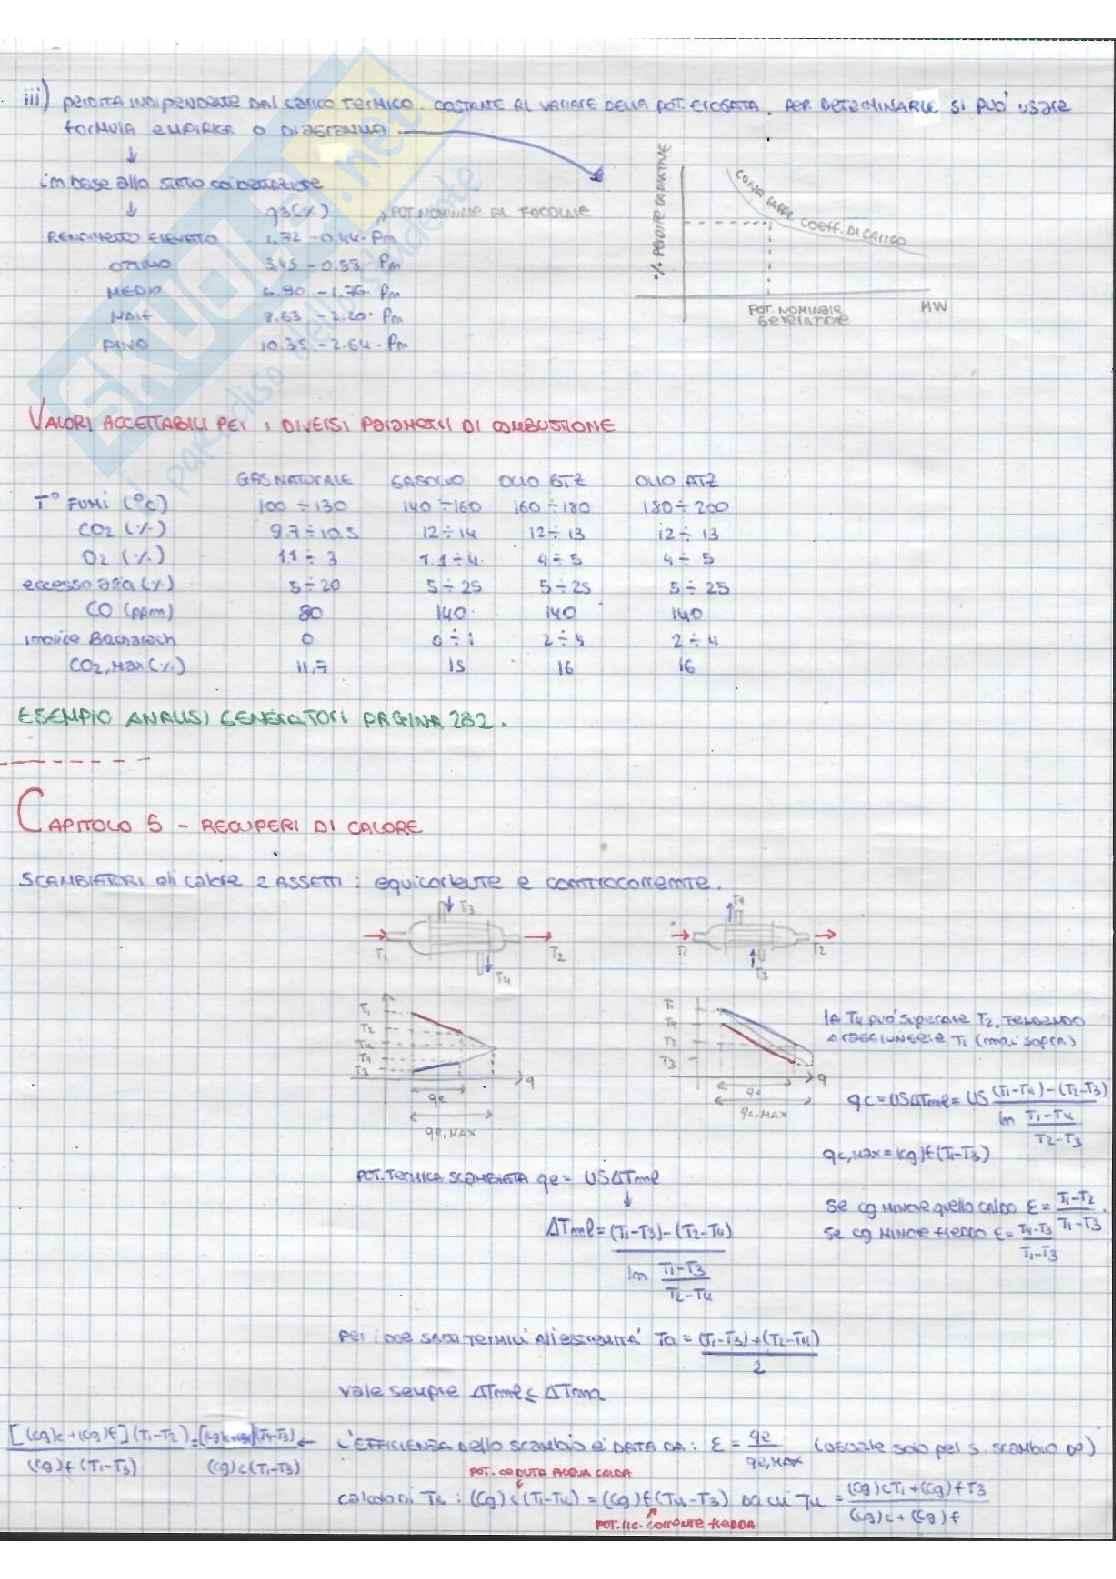 iii) PERDITA INDIPENDENTE DAL CARICO TERMICO. COSTANTE AL VARIARE DELLA POT. EROGATA. PER DETERMINARLE SI PUÒ USARE
FORMULA EMPIRICA O DIAGRAMMA
in base allo stato coibentazione
q3(%) POT. NOMINALE AL FOCOLARE
RENDIMENTO ELEVATO 1.72 - 0.44 · Pm
OTTIMO 3.45 - 0.88 Pm
MEDIO 6.90 - 1.76 · Pm
MALE 8.63 - 2.20 · Pm
10.35 - 2.64 · Pm
% PERDITE
COEFF. DI CARICO
POT. NOMINALE
GENERATORE
MW
VALORI ACCETTABILI PER I DIVERSI PARAMETRI DI COMBUSTIONE
GAS NATURALE GASOLIO OLIO BTZ OLIO ATZ
T° FUMI (°C) 100 ÷ 130 140 ÷ 160 160 ÷ 180 180 ÷ 200
CO2 (%) 9.7 ÷ 10.5 12 ÷ 14 12 ÷ 13 12 ÷ 13
O2 (%) 1.1 ÷ 3 1.1 ÷ 4 4 ÷ 5 4 ÷ 5
eccesso aria (%) 5 ÷ 20 5 ÷ 25 5 ÷ 25 5 ÷ 25
CO (ppm) 80 140 140 140
indice Bacharach 0 0 ÷ 1 2 ÷ 4 2 ÷ 4
CO2,MAX (%) 11,7 15 16 16
ESEMPIO ANALISI GENERATORI PAGINA 282.
CAPITOLO 5 - RECUPERI DI CALORE
SCAMBIATORI di calore 2 ASSETTI: equicorrente e controcorrente.
T3
T1 T2
T4
T4
T1 T2
T3
T1
T2
T4
T4
T3
q
qe
qe,MAX
T1
T4
T2
T3
q
qc
qc,MAX
la T4 può superare T2, TENDENDO
A RAGGIUNGERE T1 (mai sopra)
qc = USΔTml = US (T1-T4)-(T2-T3) / ln T1-T4 / T2-T3
qc,MAX = (cg)f(T1-T3)
POT. TERMICA SCAMBIATA qe = USΔTml
Se cg MINORE quello caldo ε = T1-T2 / T1-T3
Se cg MINORE freddo ε = T4-T3 / T1-T3
ΔTml = (T1-T3)-(T2-T4) / ln T1-T3 / T2-T4
Per i due SALTI TERMICI ALl'estremità Ta = (T1-T3)+(T2-T4) / 2
vale sempre ΔTml ≤ ΔTma
[(cg)c+(cg)f](T1-T2) / (cg)f(T1-T3) = / (cg)c(T1-T3) ← L'EFFICIENZA dello scambio è DATA DA: ε = qe / qe,MAX
POT. CEDUTA ACQUA CALDA
calcolarsi T4: (cg)c(T1-T4) = (cg)f(T4-T3) Da cui T4 = (cg)cT1+(cg)fT3 / (cg)c+(cg)f
POT. RIC. CORRENTE FREDDA